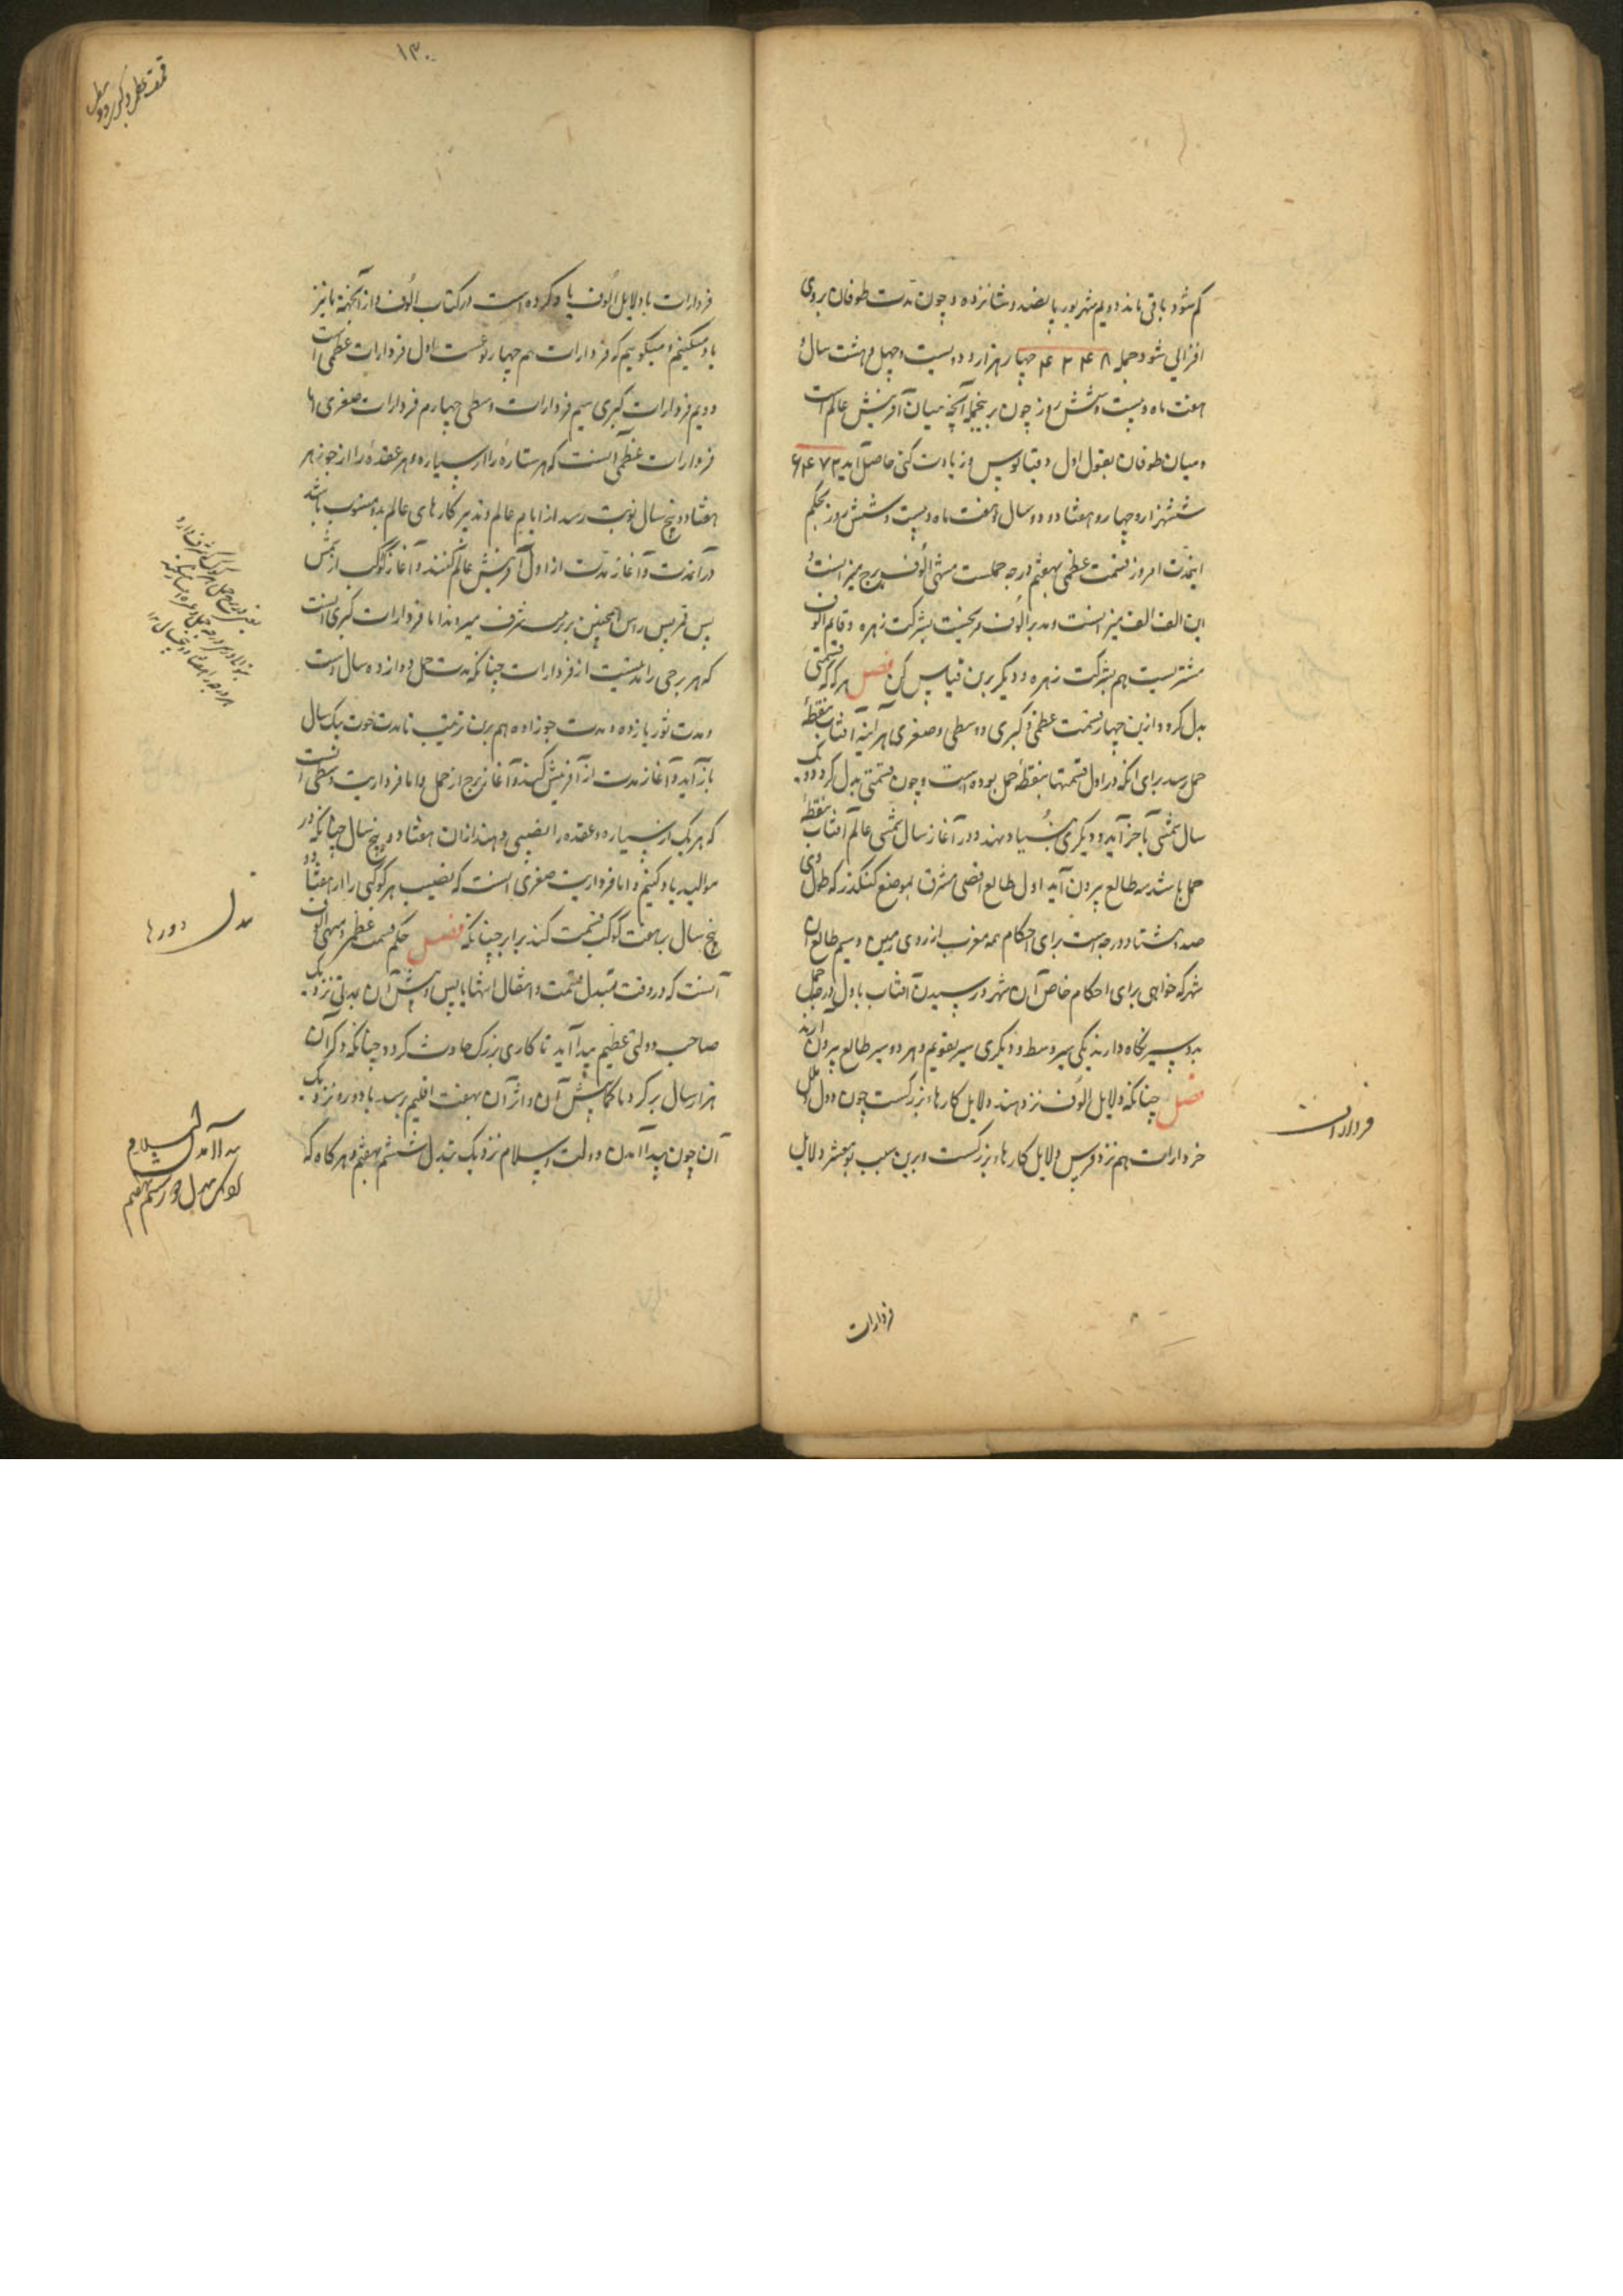 کم شود باقی ماند دویم شهریور پانصد و شانزده و چون مدت طوفان بروی
افزائی شود جمله ۴۲۴۸ چهار هزار و دویست و چهل و هشت سال و
هفت ماه و بیست و شش روز چون برینجمله آنچه میان آفرینش عالم است
و میان طوفان بقول اول زیادت کنی حاصل آید ۶۴۷۲
ششهزار و چهار و هفتاد و دو سال و هفت ماه و بیست و شش روز بحکم
اینمدت امروز قسمت عظمی بهفتم درجه حملست منتهی الوف ببرج میزانست و
این الف الف میزانست و مدبر الوف بشرکت زهره و قاسم الوف
مشتریست هم بشرکت زهره و دیگر برین قیاس کن فصل هر که که قسمتی
بدل کردد ازین چهار قسمت عظمی و کبری و وسطی و صغری هر آینه آفتاب بنقطهٔ
حمل رسد برای آنکه در اول قسمتها بنقطهٔ حمل بوده است و چون قسمتی بدل کردد یک
سال شمسی بآخر آید و دیکری بنیاد نهند و در آغاز سال شمسی عالم آفتاب بنقطهٔ
حمل باشد سه طالع بیرون آید اول طالع اقصی مشرق بموضع کنکدز که طول وی
صد و هشتاد درجه است برای احکام همه مغرب از روی زمین و سیم طالع آن
شهر که خواهی برای احکام خاص آن شهر در رسیدن آفتاب باول درجه حمل
بدو سیر نکاه دارند یکی سیر وسط و دیکری سیر تقویم و بهر دو سیر طالع بیرون آرند
فصل چنانکه دلایل الوف نزد هند دلایل کارهاء بزرکست چون دول و ملل
فردارات هم نزد فرس دلایل کارهاء بزرکست و برین سبب بومعشر دلایل
فردارات
فردارات
۱۳۰
فردارات با دلایل الوف یاد کرده است در کتاب الوف و از آنجهة ما نیز
یاد میکنیم و میکوییم که فردارات هم چهار نوعست اول فردارات عظمی است
و دویم فردارات کبری سیم فردارات وسطی چهارم فردارات صغری اما
فردارات عظمی آنست که هر ستاره را از سیاره و هر عقده را از جوزهر
هفتاد و پنج سال نوبت رسد از ایام عالم و تدبیر کارهای عالم بدو منسوب باشد
در آنمدت و آغاز مدت از اول آفرینش عالم کنند و آغاز کوکب از شمس
پس قمر پس راس همچنین بر ترتیب شرف میرود اما فردارات کبری آنست
که هر برجی را مدتیست از فردارات چنانکه مدت حمل دوازده سال است
و مدت ثور یازده و مدت جوزا ده هم برین ترتیب تا مدت حوت یک سال
بازآید و آغاز مدت از آفرینش کنند و آغاز برج از حمل و اما فرداریت وسطی آنست
که هر یک از سیاره و عقده را نصیبی دهند ازان هفتاد و پنج سال چنانکه در
موالید یاد کنیم و اما فرداریت صغری آنست که نصیب هر کوکبی را از هفتاد و
پنج سال بر هفت کوکب قسمت کنند برابر چنانکه فصل حکم قسمت عظمی و منتهی الوف
آنست که در وقت تبدیل قسمت و انتقال انتها یا پس و پیش آن بمدتی نزدیک
صاحب دولتی عظیم پیدا آید تا کاری بزرک حادث کردد چنانکه ذکر آن
هزار سال بر کرد یا کمابیش آن و اثر آن بهفت اقلیم برسد یا دوره نزدیک
آن چون پیدا آمدن دولت اسلام نزدیک تبدل ششم بهفتم و هر کاه که
بدل دورها